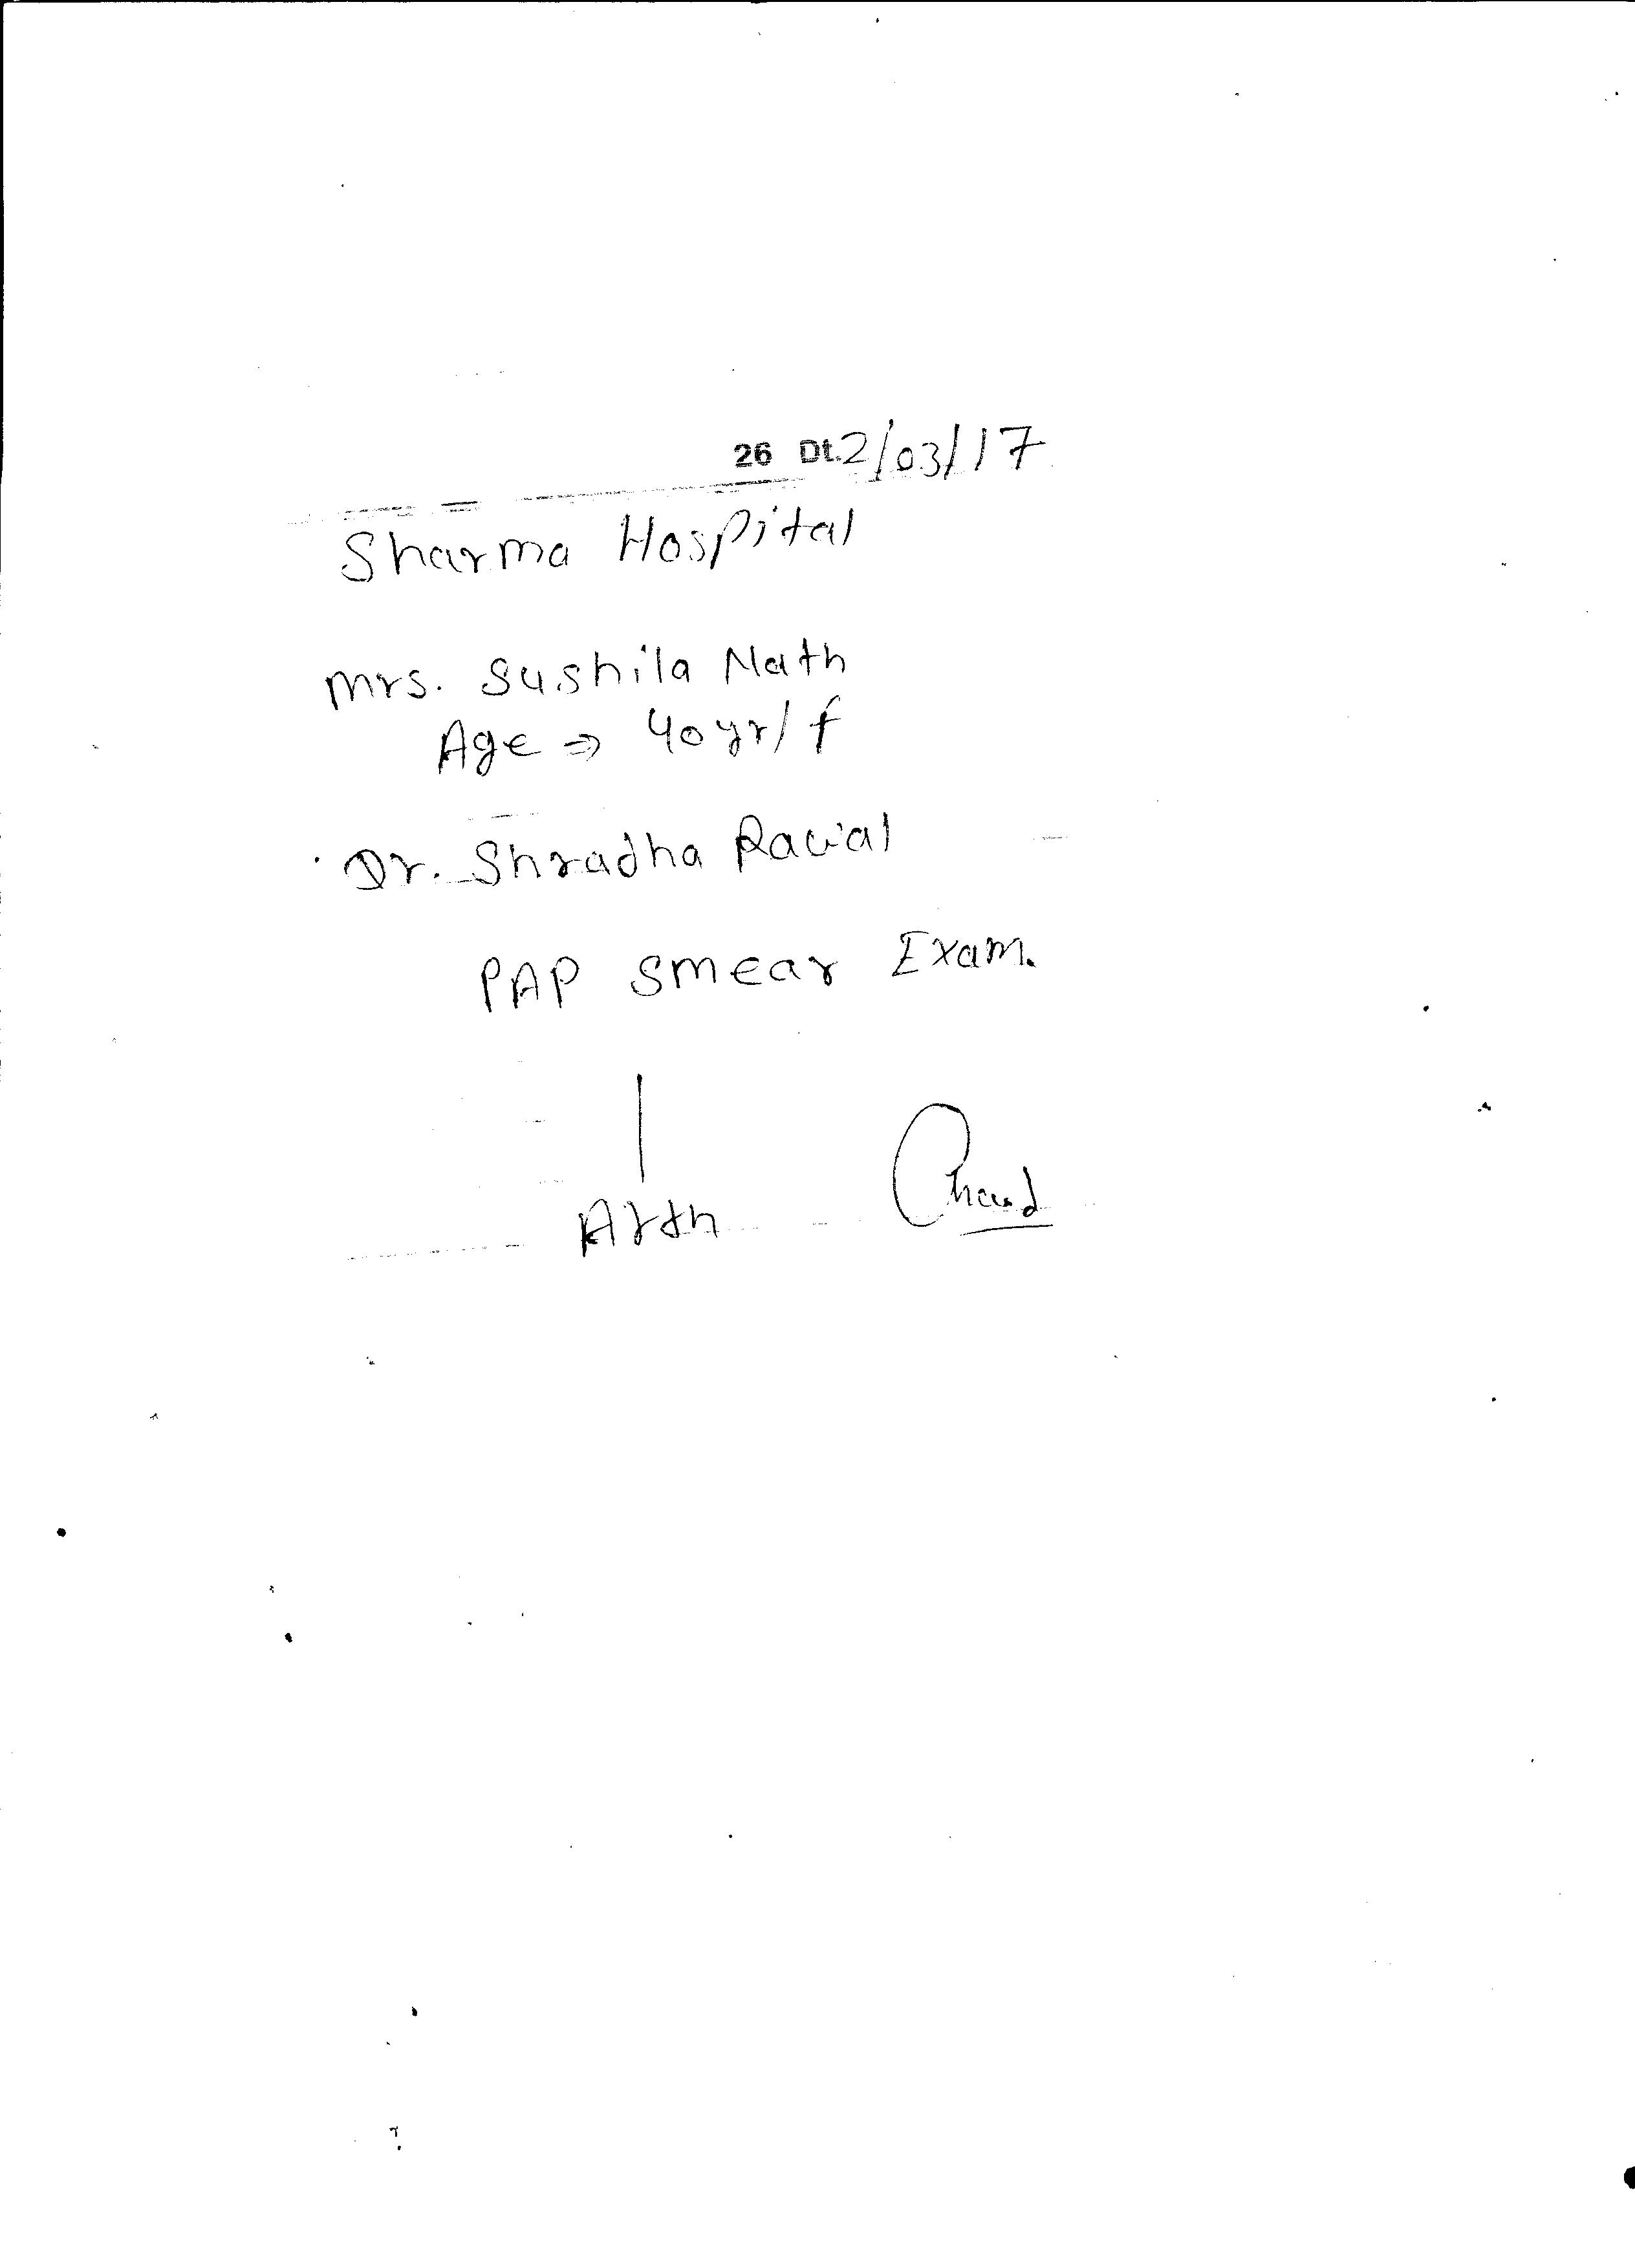 26 Dt. 2/03/17
Sharma Hospital
Mrs. Sushila Nath
Age ⇒ 40yr/f
Dr. Shradha Rawal
PAP smear Exam.
Arth